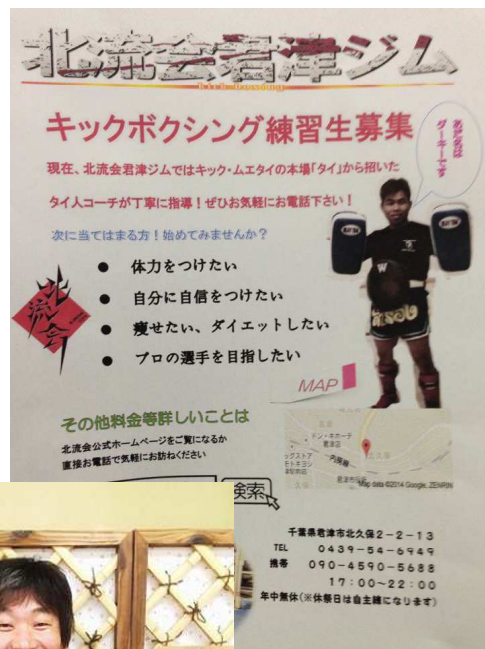 北流会君津ジム
kick boxing
キックボクシング練習生募集
現在、北流会君津ジムではキック・ムエタイの本場「タイ」から招いた
タイ人コーチが丁寧に指導！ぜひお気軽にお電話下さい！
あだ名は
ダーキーです
次に当てはまる方！始めてみませんか？
● 体力をつけたい
● 自分に自信をつけたい
● 痩せたい、ダイエットしたい
● プロの選手を目指したい
北流会
W
MAP
その他料金等詳しいことは
北流会公式ホームページをご覧になるか
直接お電話で気軽にお訪ねください
検索
ドン・キホーテ
君津店
内房線
Map data ©2014 Google, ZENRIN
千葉県君津市北久保2-2-13
TEL 0439-54-6949
携帯 090-4590-5688
17:00~22:00
年中無休(※休祭日は自主練になります)